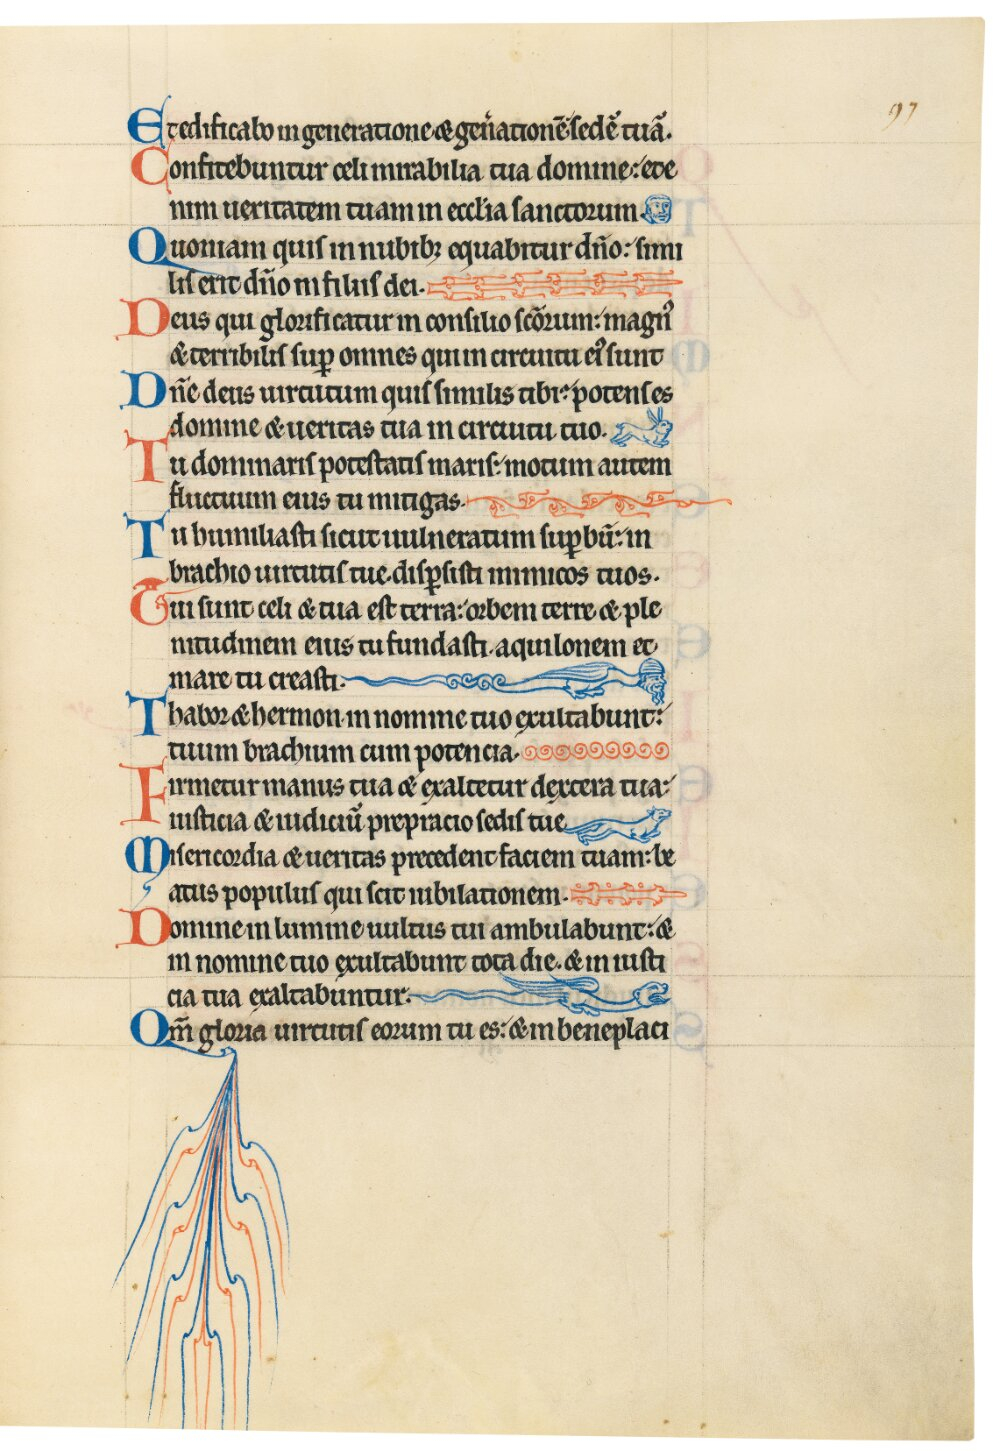 97
Et edificabo in generatione & geñationē sedē tuā.
Confitebuntur celi mirabilia tua domine: ete
nim ueritatem tuam in ecclia sanctorum
Quoniam quis in nubibꝫ equabitur dño: simi
lis erit dño in filiis dei.
Deus qui glorificatur in consilio scõrum: magn᷒
& terribilis suꝑ omnes qui in circuitu ei᷒ sunt
Dñe deus uirtutum quis similis tibi: potens es
domine & ueritas tua in circuitu tuo.
Tu dominaris potestatis maris: motum autem
fluctuum eius tu mitigas.
Tu humiliasti sicut uulneratum suꝑbū: in
brachio uirtutis tue. disꝑsisti inimicos tuos.
Tui sunt celi & tua est terra: orbem terre & ple
nitudinem eius tu fundasti. aquilonem et
mare tu creasti.
Thabor & hermon in nomine tuo exultabunt:
tuum brachium cum potencia.
Firmetur manus tua & exaltetur dextera tua:
iusticia & iudiciū prepracio sedis tue
Misericordia & ueritas precedent faciem tuam: be
atus populus qui scit iubilationem.
Domine in lumine uultus tui ambulabunt: &
in nomine tuo exultabunt tota die. & in iusti
cia tua exaltabuntur.
Qm̄ gloria uirtutis eorum tu es: & in beneplaci